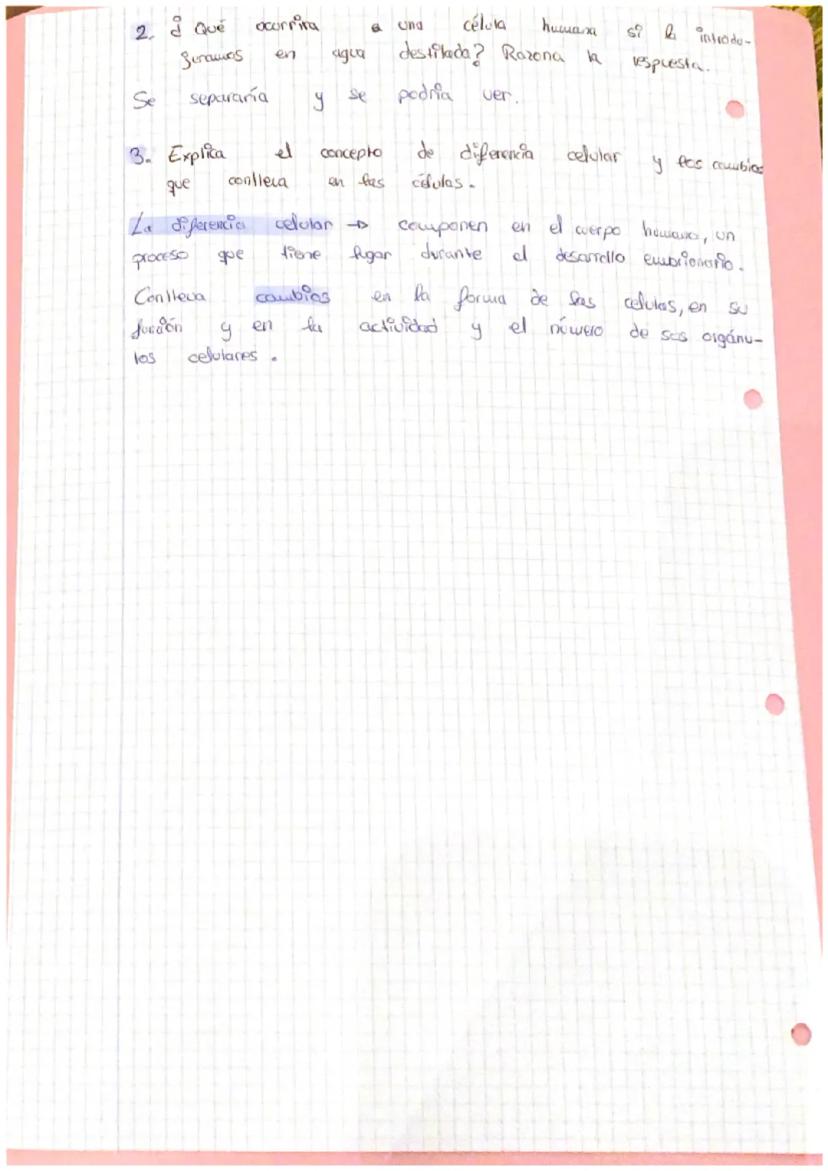 2. ¿ Qué ocurrira a una célula humana si la introdu-
jeramos en agua destilada? Razona la respuesta.
Se separaría y se podría ver.
3. Explica el concepto de diferencia celular y los cambios
que conlleva en las células.
La diferencia celular → componen en el cuerpo humano, un
proceso que tiene lugar durante el desarrollo embrionario.
Conlleva cambios en la forma de las celulas, en su
función y en la actividad y el número de sus orgánu-
los celulares.